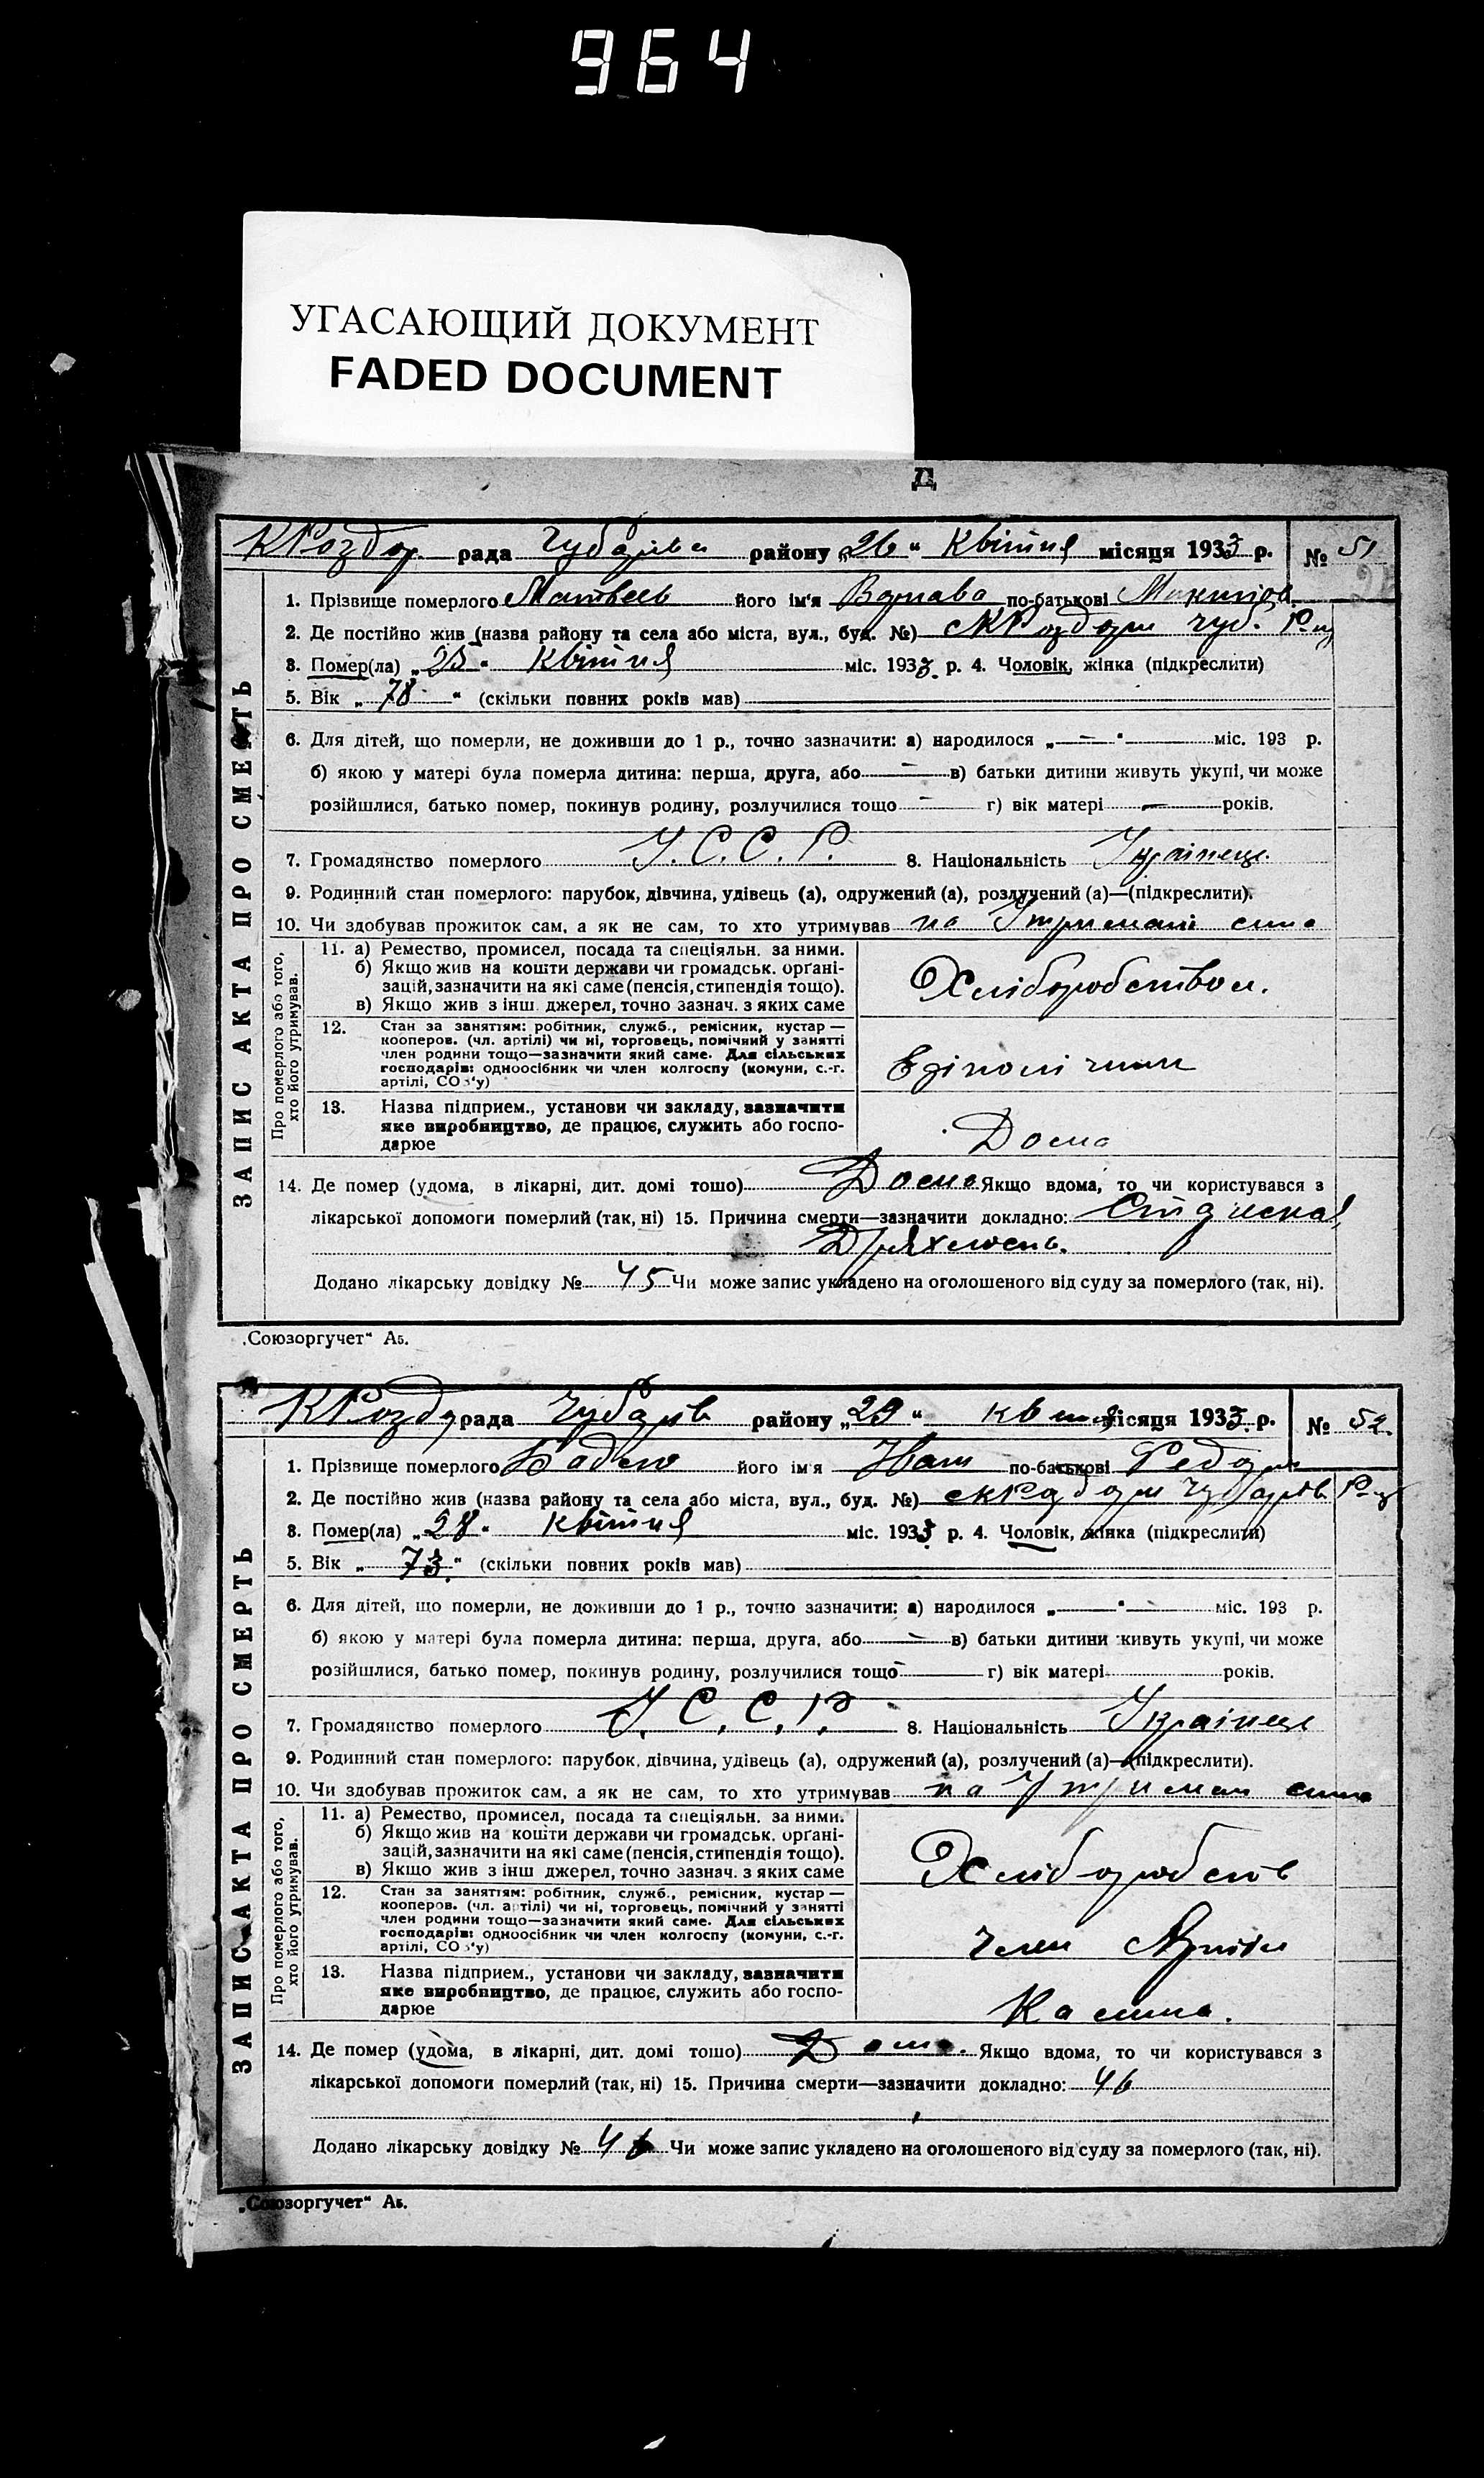 964
УГАСАЮЩИЙ ДОКУМЕНТ
FADED DOCUMENT
Д
КРоздор. рада Чубарівс району „26“ Квітня місяця 1933 р. № 51
ЗАПИС АКТА ПРО СМЕРТЬ
1. Прізвище померлого Матвеев його ім'я Варнава по-батькові
2. Де постійно жив (назва району та села або міста, вул., буд. №) с КРоздори Чуб. Р-ну
3. Помер(ла) „25“ Квітня міс. 1933 р. 4. Чоловік, жінка (підкреслити)
5. Вік „78“ (скільки повних років мав)
6. Для дітей, що померли, не доживши до 1 р., точно зазначити: а) народилося „—“ міс. 193 р.
б) якою у матері була померла дитина: перша, друга, або — в) батьки дитини живуть укупі, чи може
розійшлися, батько помер, покинув родину, розлучилися тощо — г) вік матері — років.
7. Громадянство померлого У.С.С.Р. 8. Національність Українец.
9. Родинний стан померлого: парубок, дівчина, удівець (а), одружений (а), розлучений (а)—(підкреслити).
10. Чи здобував прожиток сам, а як не сам, то хто утримував на Утримані сина
Про померлого або того, хто його утримував.
11. а) Ремество, промисел, посада та спеціяльн. за ними.
б) Якщо жив на кошти держави чи громадськ. орґані-
зацій, зазначити на які саме (пенсія, стипендія тощо).
в) Якщо жив з інш. джерел, точно зазнач. з яких саме
Хліборобством.
12. Стан за заняттям: робітник, служб., ремісник, кустар —
кооперов. (чл. артілі) чи ні, торговець, помічний у занятті
член родини тощо—зазначити який саме. Для сільських
господарів: одноосібник чи член колгоспу (комуни, с.-г.
артілі, СОЗ'у)
13. Назва підприєм., установи чи закладу, зазначити
яке виробництво, де працює, служить або госпо-
дарює
Дома
14. Де помер (удома, в лікарні, дит. домі тощо) Дома Якщо вдома, то чи користувався з
лікарської допомоги померлий (так, ні) 15. Причина смерти—зазначити докладно:
Дряхлость.
Додано лікарську довідку № 45 Чи може запис укладено на оголошеного від суду за померлого (так, ні).
„Союзоргучет“ А5.
КРоздор рада Чубарів району „29“ квітня місяця 1933 р. № 52.
ЗАПИС АКТА ПРО СМЕРТЬ
1. Прізвище померлого його ім'я Иван по-батькові Федор
2. Де постійно жив (назва району та села або міста, вул., буд. №) с КРоздори Чубарів Р-ну
3. Помер(ла) „28“ Квітня міс. 1933 р. 4. Чоловік, жінка (підкреслити)
5. Вік „73.“ (скільки повних років мав)
6. Для дітей, що померли, не доживши до 1 р., точно зазначити: а) народилося „—“ міс. 193 р.
б) якою у матері була померла дитина: перша, друга, або — в) батьки дитини живуть укупі, чи може
розійшлися, батько помер, покинув родину, розлучилися тощо — г) вік матері років.
7. Громадянство померлого У.С.С.Р. 8. Національність Українец
9. Родинний стан померлого: парубок, дівчина, удівець (а), одружений (а), розлучений (а)—(підкреслити).
10. Чи здобував прожиток сам, а як не сам, то хто утримував на Утриман сина
Про померлого або того, хто його утримував.
11. а) Ремество, промисел, посада та спеціяльн. за ними.
б) Якщо жив на кошти держави чи громадськ. орґані-
зацій, зазначити на які саме (пенсія, стипендія тощо).
в) Якщо жив з інш джерел, точно зазнач. з яких саме
Хліборобств
12. Стан за заняттям: робітник, служб., ремісник, кустар —
кооперов. (чл. артілі) чи ні, торговець, помічний у занятті
член родини тощо—зазначити який саме. Для сільських
господарів: одноосібник чи член колгоспу (комуни, с.-г.
артілі, СОЗ'у)
Член Артіли
13. Назва підприєм., установи чи закладу, зазначити
яке виробництво, де працює, служить або госпо-
дарює
14. Де помер (удома, в лікарні, дит. домі тощо) Дома. Якщо вдома, то чи користувався з
лікарської допомоги померлий (так, ні) 15. Причина смерти—зазначити докладно: 46
Додано лікарську довідку № 46 Чи може запис укладено на оголошеного від суду за померлого (так, ні).
„Союзоргучет“ А5.